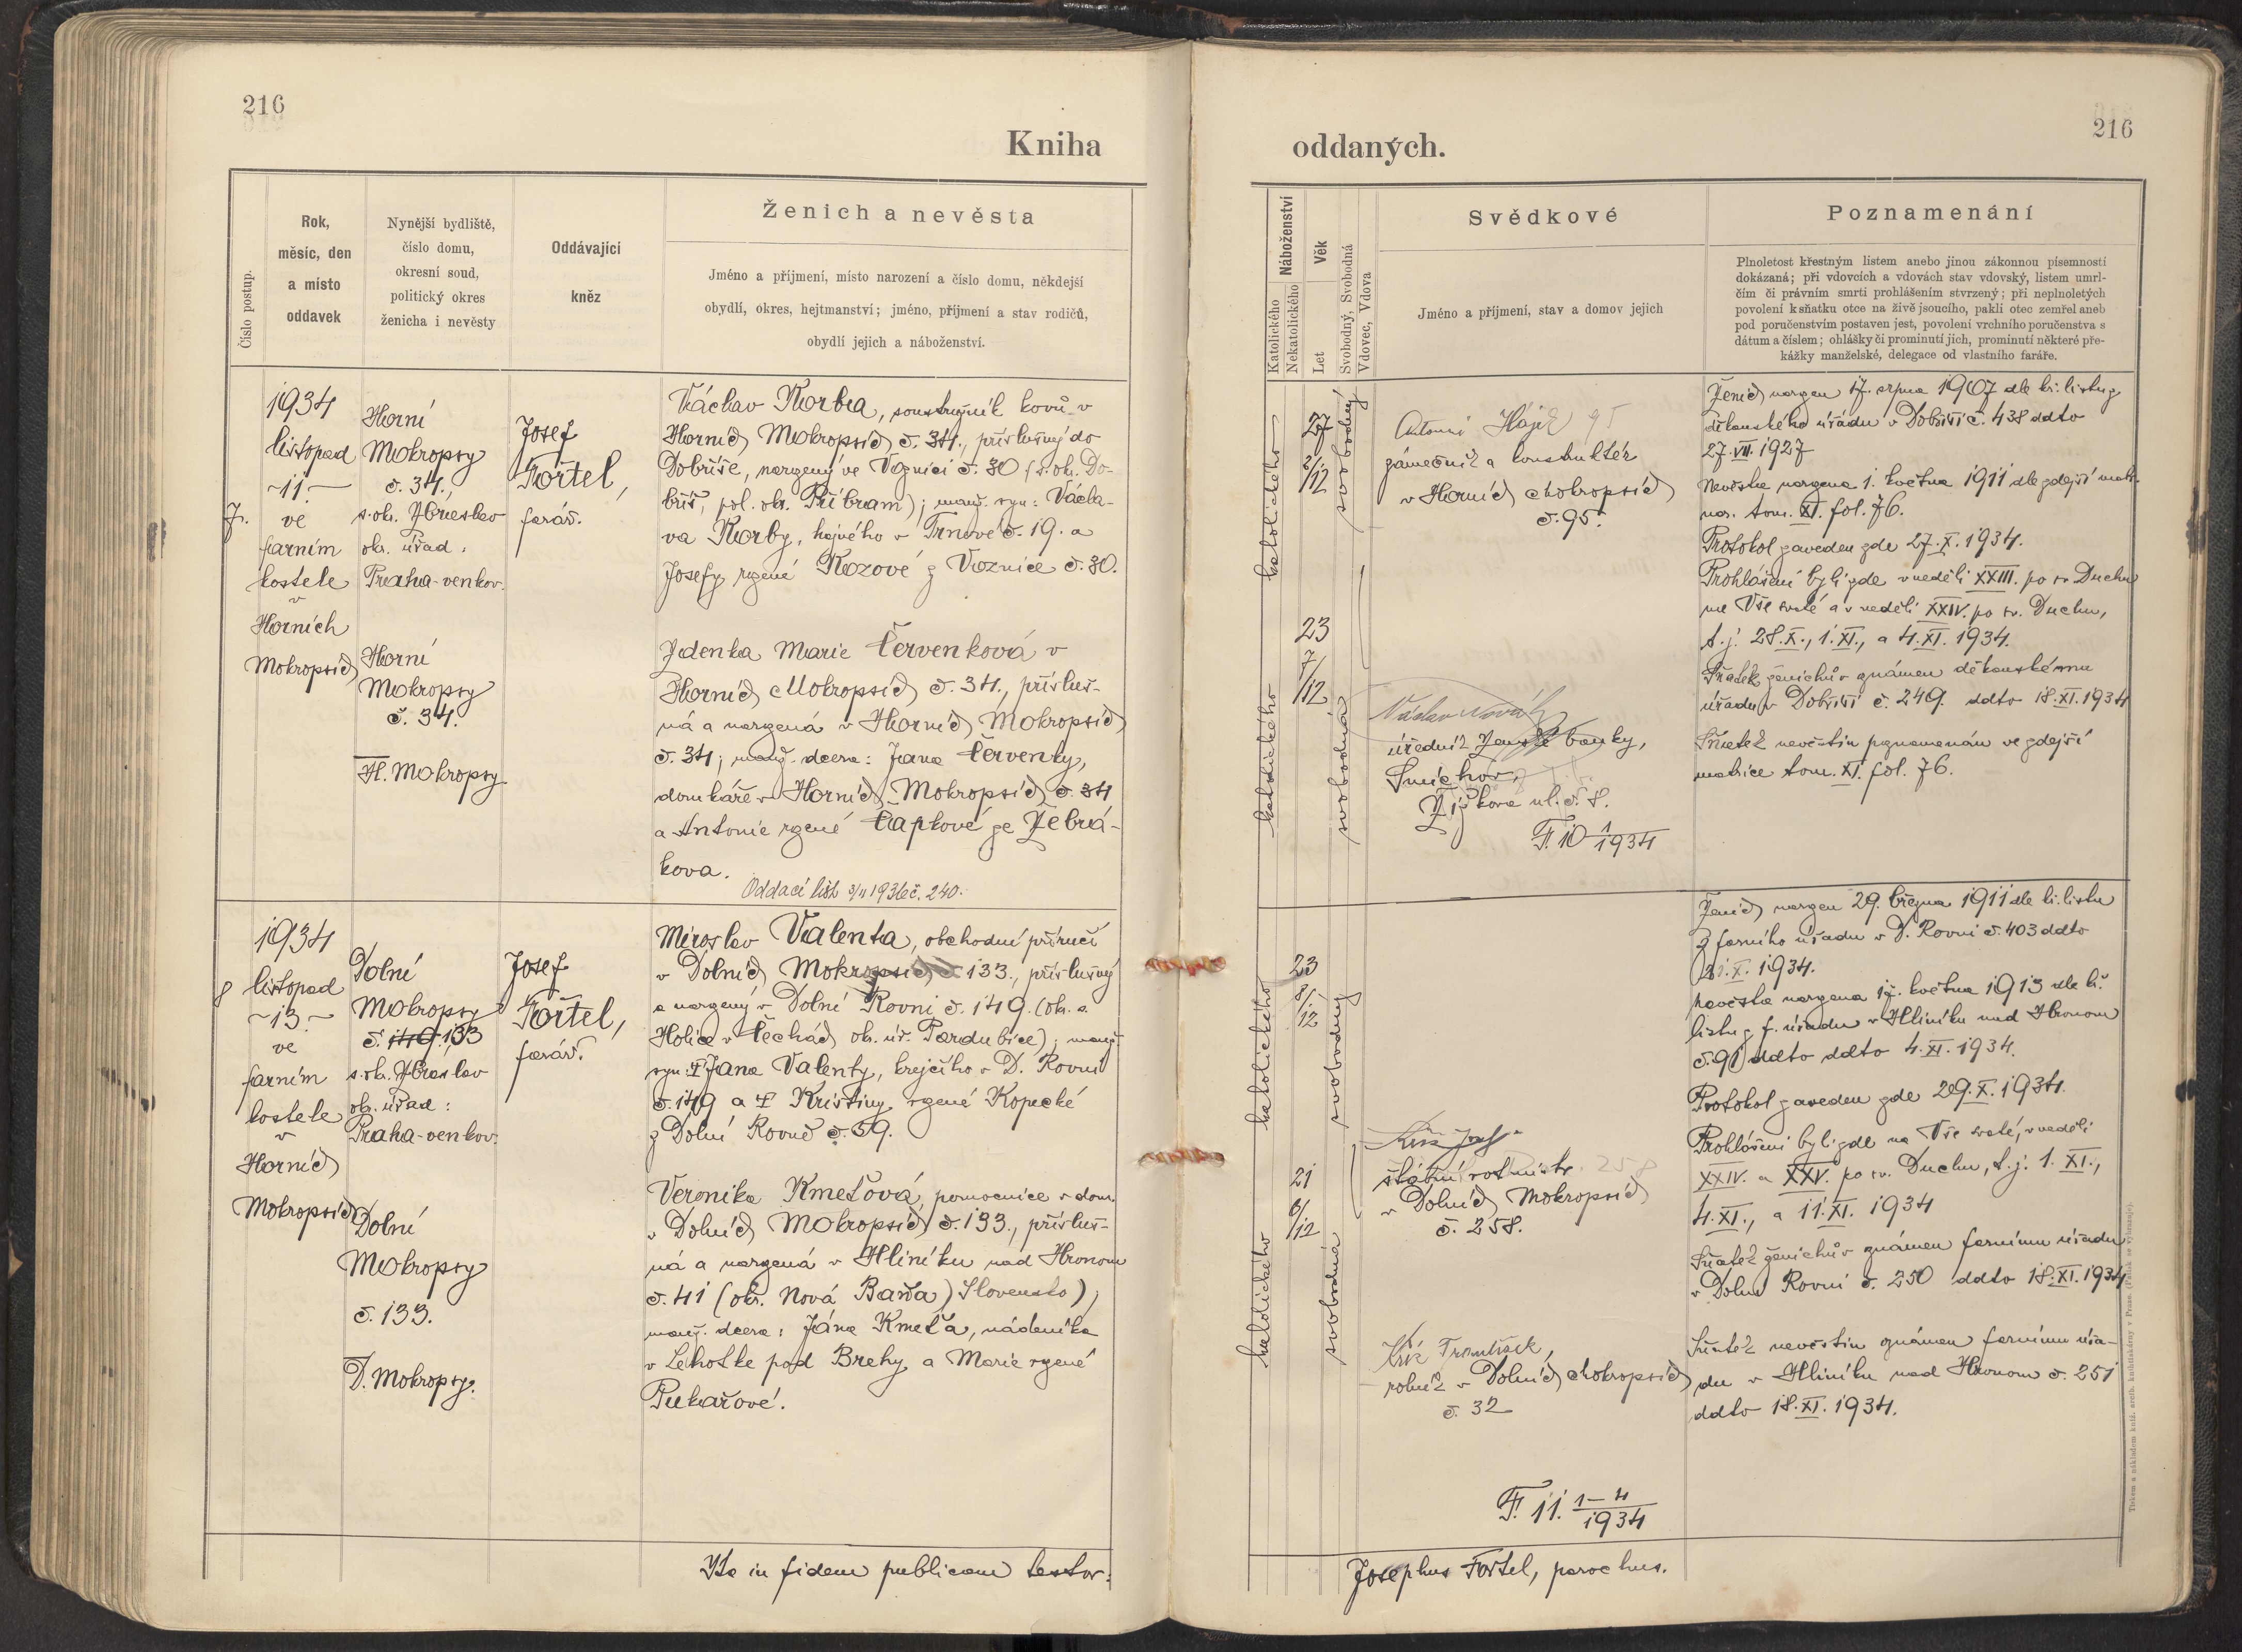 216
Kniha
Číslo postup.
Rok,
měsíc, den
a místo
oddavek
Nynější bydliště,
číslo domu,
okresní soud,
politický okres
ženicha i nevěsty
Oddávající
kněz
Ženich a nevěsta
Jméno a příjmení, místo narození a číslo domu, někdejší
obydlí, okres, hejtmanství; jméno, příjmení a stav rodičů,
obydlí jejich a náboženství.
7.
1934
listopad
~11.~
ve
farním
kostele
v
Horních
Mokropsích
Horní
Mokropsy
č. 34.,
s. ok. Zbraslav
ok. úřad:
Praha-venkov.
Horní
Mokropsy
č. 34.
H. Mokropsy
Josef
Fořtel,
farář.
Václav Korba, soustružník kovů v
Horních Mokropsích č. 34., příslušný do
Dobříše, narozený ve Voznici č. 30 (s. ok. Do-
bříš, pol. ok. Příbram); manž. syn: Václa-
va Korby, hajného v Trnové č. 19. a
Josefy rozené Kozové z Voznice č. 30.
Zdenka Marie Červenková v
Horních Mokropsích č. 34., přísluš-
ná a narozená v Horních Mokropsích
č. 34; manž. dcera: Jana Červenky,
domkáře v Horních Mokropsích č. 34
a Antonie rozené Čapkové ze Žebrá-
kova.
Oddací list 3/II 1936 č. 240.
8
1934
listopad
~13.~
ve
farním
kostele
v
Horních
Mokropsích
Dolní
Mokropsy
č. 149. 133
s. ok. Zbraslav
ok. úřad:
Praha-venkov.
Dolní
Mokropsy
č. 133.
D. Mokropsy.
Josef
Fořtel,
farář.
Miroslav Valenta, obchodní příručí
v Dolních Mokropsích č. 133., příslušný
a narozený v Dolní Rovni č. 149. (ok. s.
Holice v Čechách, ok. úř. Pardubice); manž.
syn: † Jana Valenty, krejčího v D. Rovni
č. 149 a † Kristiny rozené Kopecké
z Dolní Rovně č. 59.
Veronika Kmeťová, pomocnice v dom.
v Dolních Mokropsích č. 133., přísluš-
ná a narozená v Hliníku nad Hronom
č. 41 (okr. Nová Baňa) Slovensko);
manž. dcera: Jána Kmeťa, nádeníka
v Lehotke pod Brehy a Marie rozené
Pukařové.
Ita in fidem publicam testor:
216
oddaných.
Náboženství
Katolického
Nekatolického
Věk
Let
Svobodný, Svobodná
Vdovec, Vdova
Svědkové
Jméno a příjmení, stav a domov jejich
Poznamenání
Plnoletost křestným listem anebo jinou zákonnou písemností
dokázaná; při vdovcích a vdovách stav vdovský, listem umrl-
čím či právním smrti prohlášením stvrzený; při neplnoletých
povolení k sňatku otce na živě jsoucího, pakli otec zemřel aneb
pod poručenstvím postaven jest, povolení vrchního poručenstva s
dátum a číslem; ohlášky či prominutí jich, prominutí některé pře-
kážky manželské, delegace od vlastního faráře.
katolického
27
2/12
svobodný
katolického
23
7/12
svobodná
Antonín Hájek 95
zámečník a konstruktér
v Horních Mokropsích
č. 95.
Václav Novák
úředník Zemské banky,
Smíchov,
Žižkova ul. č. 8.
F. 10 1/1934
Ženich narozen 17. srpna 1907 dle kř. listu z
děkanského úřadu v Dobříši č. 438 ddto
27. VII. 1927
Nevěsta narozena 1. května 1911 dle zdejší matr.
nar. tom. XI. fol. 76.
Protokol zaveden zde 27. X. 1934.
Prohlášení byli zde v neděli XXIII. po sv. Duchu
na Vše svaté a v neděli XXIV. po sv. Duchu,
t. j. 28. X., 1. XI., a 4. XI. 1934.
Sňatek ženichův oznámen děkanskému
úřadu v Dobříši č. 249. ddto 18. XI. 1934
Sňatek nevěstin poznamenán ve zdejší
matrice tom. XI. fol. 76.
katolického
23
8/12
svobodný
katolického
21
6/12
svobodná
Kříž Josef
štábní rotmistr. 258
v Dolních Mokropsích
č. 258.
Kříž František,
rolník v Dolních Mokropsích
č. 32
F. 11. 1-4/1934
Ženich narozen 29. března 1911 dle kř. listu
z farního úřadu v D. Rovni č. 403 ddto
21. X. 1934.
Nevěsta narozena 17. května 1913 dle kř.
listu z f. úřadu v Hliníku nad Hronom
č. 91 ddto ddto 4. XI. 1934.
Protokol zaveden zde 29. X. 1934.
Prohlášeni byli zde na Vše svaté, v neděli
XXIV. a XXV. po sv. Duchu, t. j. 1. XI.,
4. XI., a 11. XI. 1934
Sňatek ženichův oznámen farnímu úřadu
v Dolní Rovni č. 250 ddto 18. XI. 1934
Sňatek nevěstin oznámen farnímu úřa-
du v Hliníku nad Hronom č. 251
ddto 18. XI. 1934.
Josephus Fořtel, parochus.